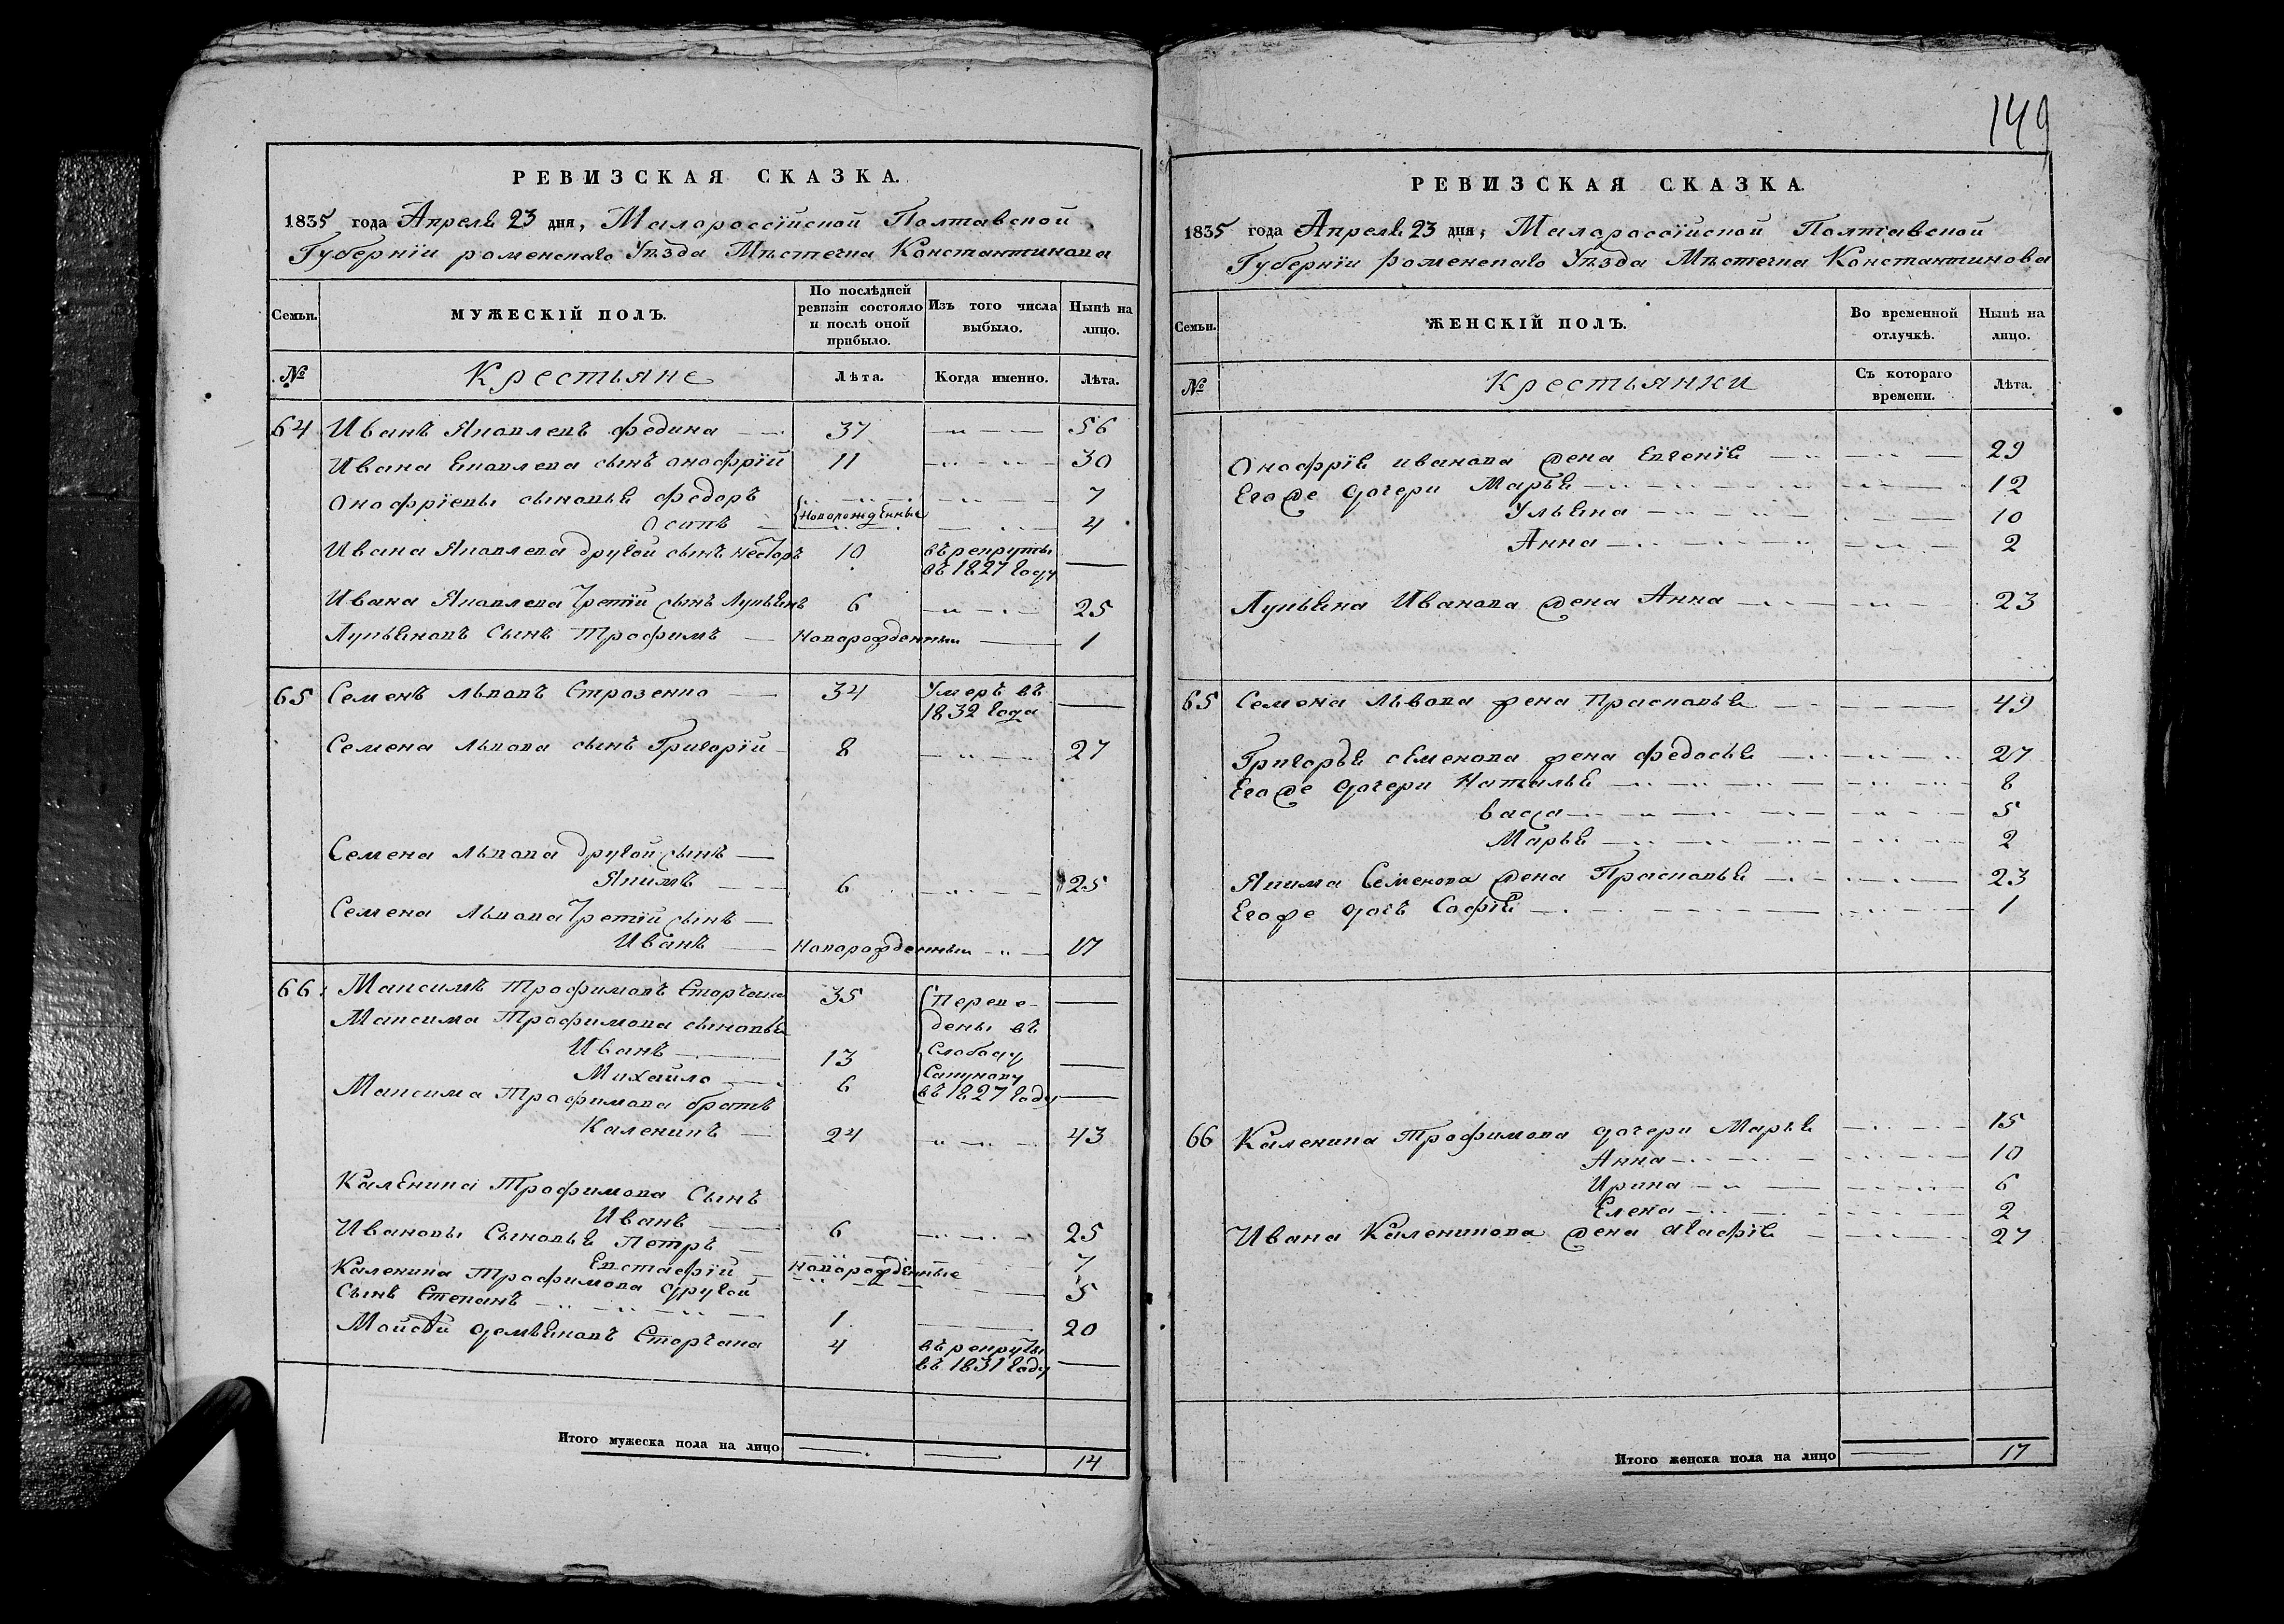 РЕВИЗСКАЯ СКАЗКА.
1835 года Апреля 23 дня, Малороссїйской Полтавской
Губернїи роменскаго Уѣзда Мѣстечка Константинова
Семьи.
МУЖЕСКІЙ ПОЛЪ.
По послѣдней ревизіи состояло и послѣ оной прибыло.
Изъ того числа выбыло.
Нынѣ на лицо.
№
Крестьяне
Лѣта.
Когда именно.
Лѣта.
64 Иванъ Яковлевъ Федина 37 56
Ивана Яковлева сынъ Онофрїй 11 30
Онофрїевы сыновья Федоръ 7
Осипъ Новорожденные 4
Ивана Яковлева другой сынъ Несторъ 10 въ рекруты
въ 1827 году
Ивана Яковлева третїй сынъ Лукьянъ 6 25
Лукьяновъ Сынъ Трофимъ Новорожденный 1
65 Семенъ Львовъ 34 Умеръ въ
1832 года
Семена Львова сынъ Григорїй 8 27
Семена Львова другой сынъ
Якимъ 6 25
Семена Львова третїй сынъ
Иванъ Новорожденный 17
66 Максимъ Трофимовъ Сторчака 35 Переве-
Максима Трофимова сыновья дены въ
Иванъ 13 Слободу
Михайло 6
Максима Трофимова братъ въ 1827 году
Каленикъ 24 43
Каленика Трофимова Сынъ
Иванъ 6 25
Ивановы Сыновья Петръ 7
Евстафїй Новорожденные 5
Каленика Трофимова другой
Сынъ Степанъ 1 20
Моисѣй Демьяновъ Сторчака 4 въ рекруты
въ 1831 году
Итого мужеска пола на лицо 14
149
РЕВИЗСКАЯ СКАЗКА.
1835 года Апреля 23 дня, Малороссїйской Полтавской
Губернїи Роменскаго Уѣзда Мѣстечка Константинова
Семьи.
ЖЕНСКІЙ ПОЛЪ.
Во временной отлучкѣ.
Нынѣ на лицо.
№
Крестьянки
Съ котораго времени.
Лѣта.
Онофрїя иванова жена Евгенїя 29
Его же дочери Марья 12
Ульяна 10
Анна 2
Лукьяна Иванова жена Анна 23
65 Семена Львова жена Прасковья 49
Григорья Семенова жена Федосья 27
Его же дочери Наталья 8
Васса 5
Марья 2
Якима Семенова жена Прасковья 23
Его же дочь Софїя 1
66 Каленика Трофимова дочери Марья 15
Анна 10
Ирина 6
Елена 2
Ивана Каленикова жена Агафїя 27
Итого женска пола на лицо 17